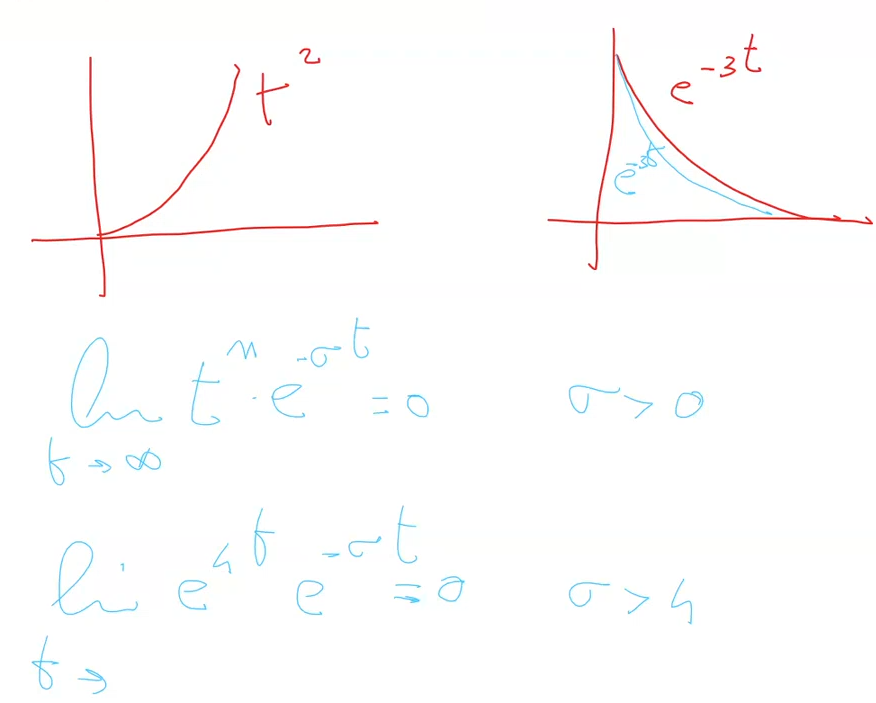 t²
e^{-3t}
e^{-3t}
lim t^n · e^{-σt} = 0 σ > 0
t → ∞
lim e^{4t} e^{-σt} = 0 σ > 4
t →